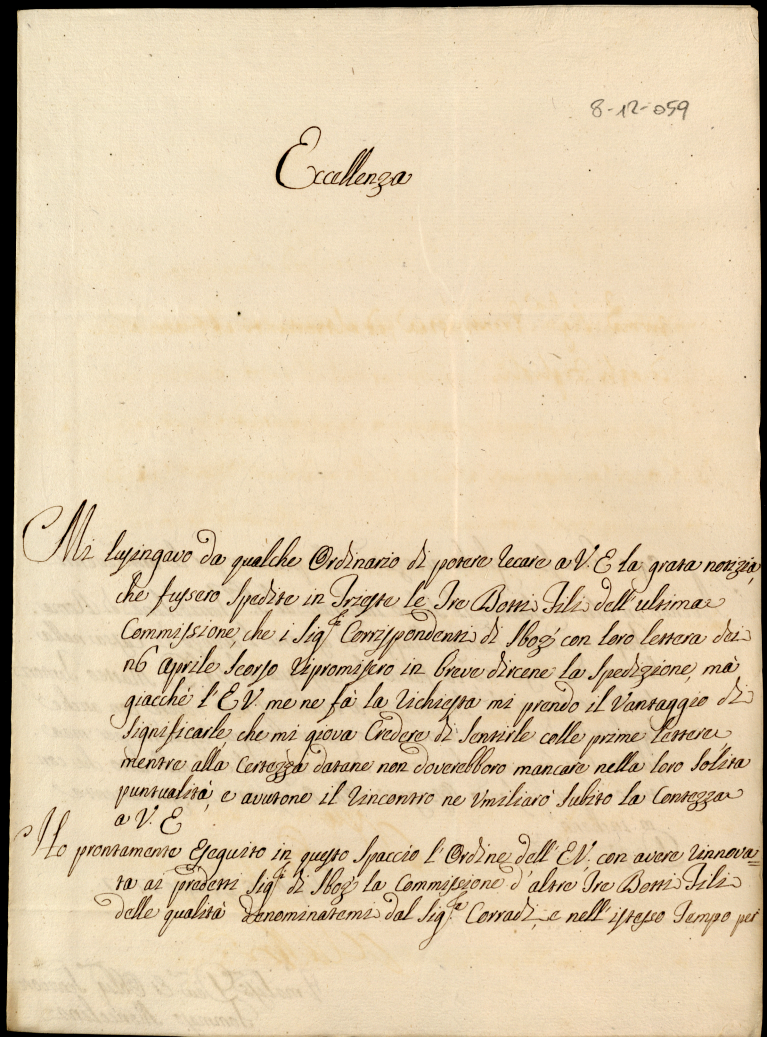 8-12-059
Eccellenza
Mi lusingavo da qualche Ordinario di potere recare a V. E la grata notizia,
che fussero spedite in Trieste le Tre Botti Fili dell'ultima
Commissione, che i Sig.ri Corrispondenti di Sboz con loro lettera dei
n6 aprile scorso ripromisero in breve dircene la Spedizione, mà
giacché l'E V. me ne fà la richiesta mi prendo il Vantaggio di
significarle, che mi giova Credere di Sentirle colle prime lettere
mentre alla Certezza datane non doverebboro mancare nella loro Sólita
puntualità, e avutone il rincontro ne Vmiliarò Subito la Contezza
a V. E
Ho prontamente Eseguito in questo Spaccio l'Ordine dell'E V. con avere rinnova=
ta ai predetti Sig.ri di Sboz la Commissione d'altre Tre Botti Fili
delle qualità denominatemi dal Sig.re Corradi, e nell'istesso Tempo per